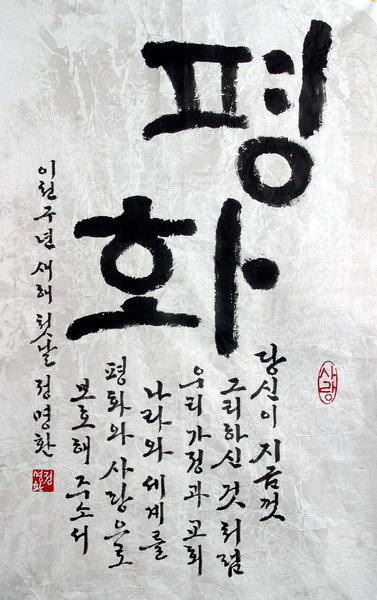 평화
당신이 지금껏
그리하신 것처럼
우리 가정과 교회
나라와 세계를
평화와 사랑으로
보호해 주소서
이천구년 새해 첫날 정명환
사랑
정명환